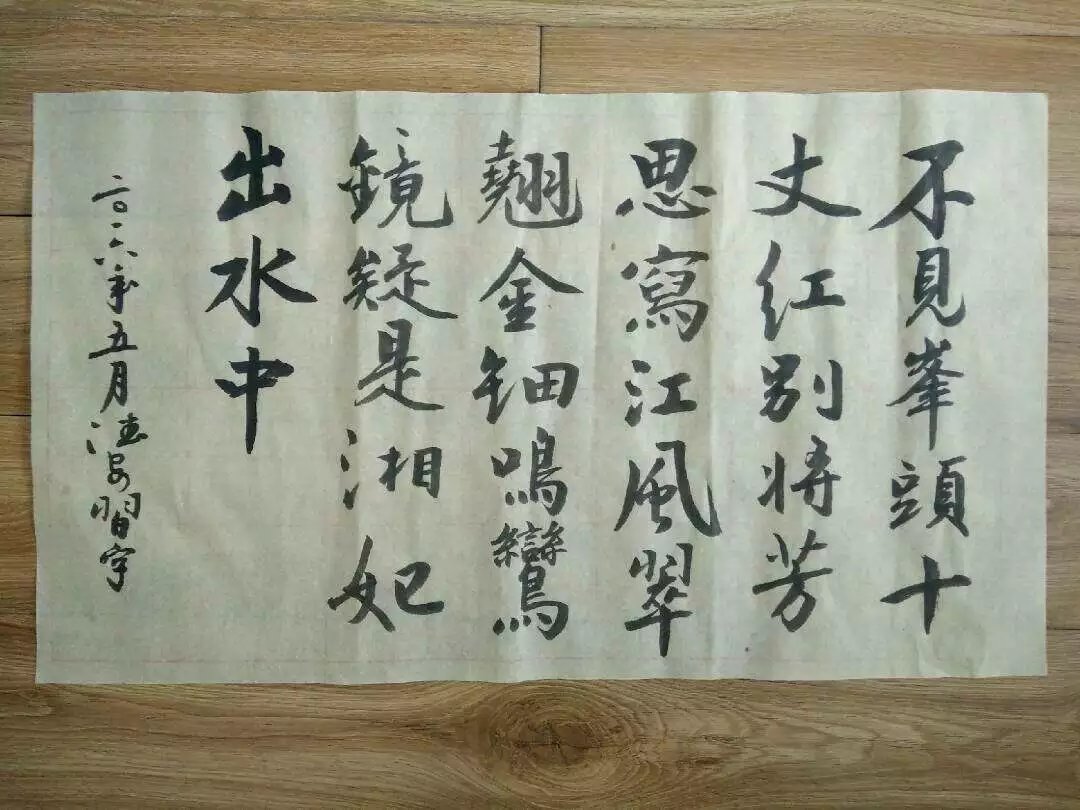 不見峯頭十
丈紅别將芳
思寫江風翠
翹金鈿鳴鸞
鏡疑是湘妃
出水中
二〇一六年五月 習字